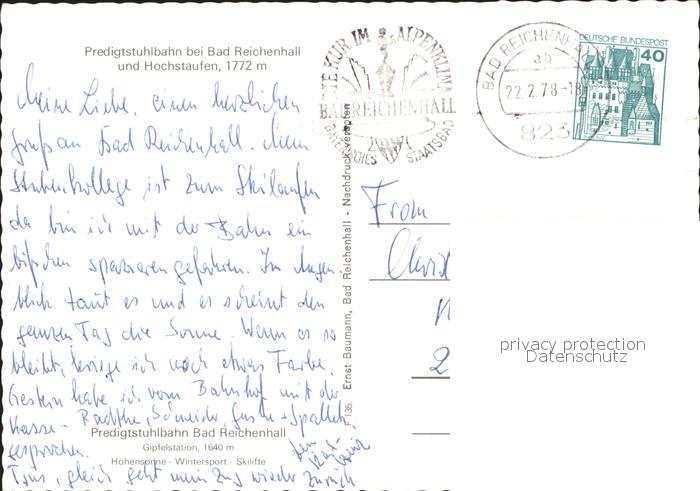 Predigtstuhlbahn bei Bad Reichenhall
und Hochstaufen, 1772 m
Meine Liebe, einen herzlichen
Gruß aus Bad Reichenhall. Mein
Stubenkollege ist zum Skilaufen
da bin ich mit der Bahn ein
bißchen spazierengefahren. Im Augen-
blick taut es und es scheint den
ganzen Tag die Sonne. Wenn es so
bleibt, kriege ich noch etwas Farbe.
Gestern habe ich vom Bahnhof mit der
Kasse - Schneider,
gesprochen.
Predigtstuhlbahn Bad Reichenhall
Gipfelstation, 1640 m
Höhensonne - Wintersport - Skilifte
Tschüs, gleich geht mein Zug wieder zurück
Ernst Baumann, Bad Reichenhall - Nachdruck verboten
F 135
KUR IM ALPENKLIMA
BAD REICHENHALL
BAYERISCHES STAATSBAD
BAD REICHENHALL
ab
22.2.78-18
823
DEUTSCHE BUNDESPOST
40
Frau
2
privacy protection
Datenschutz